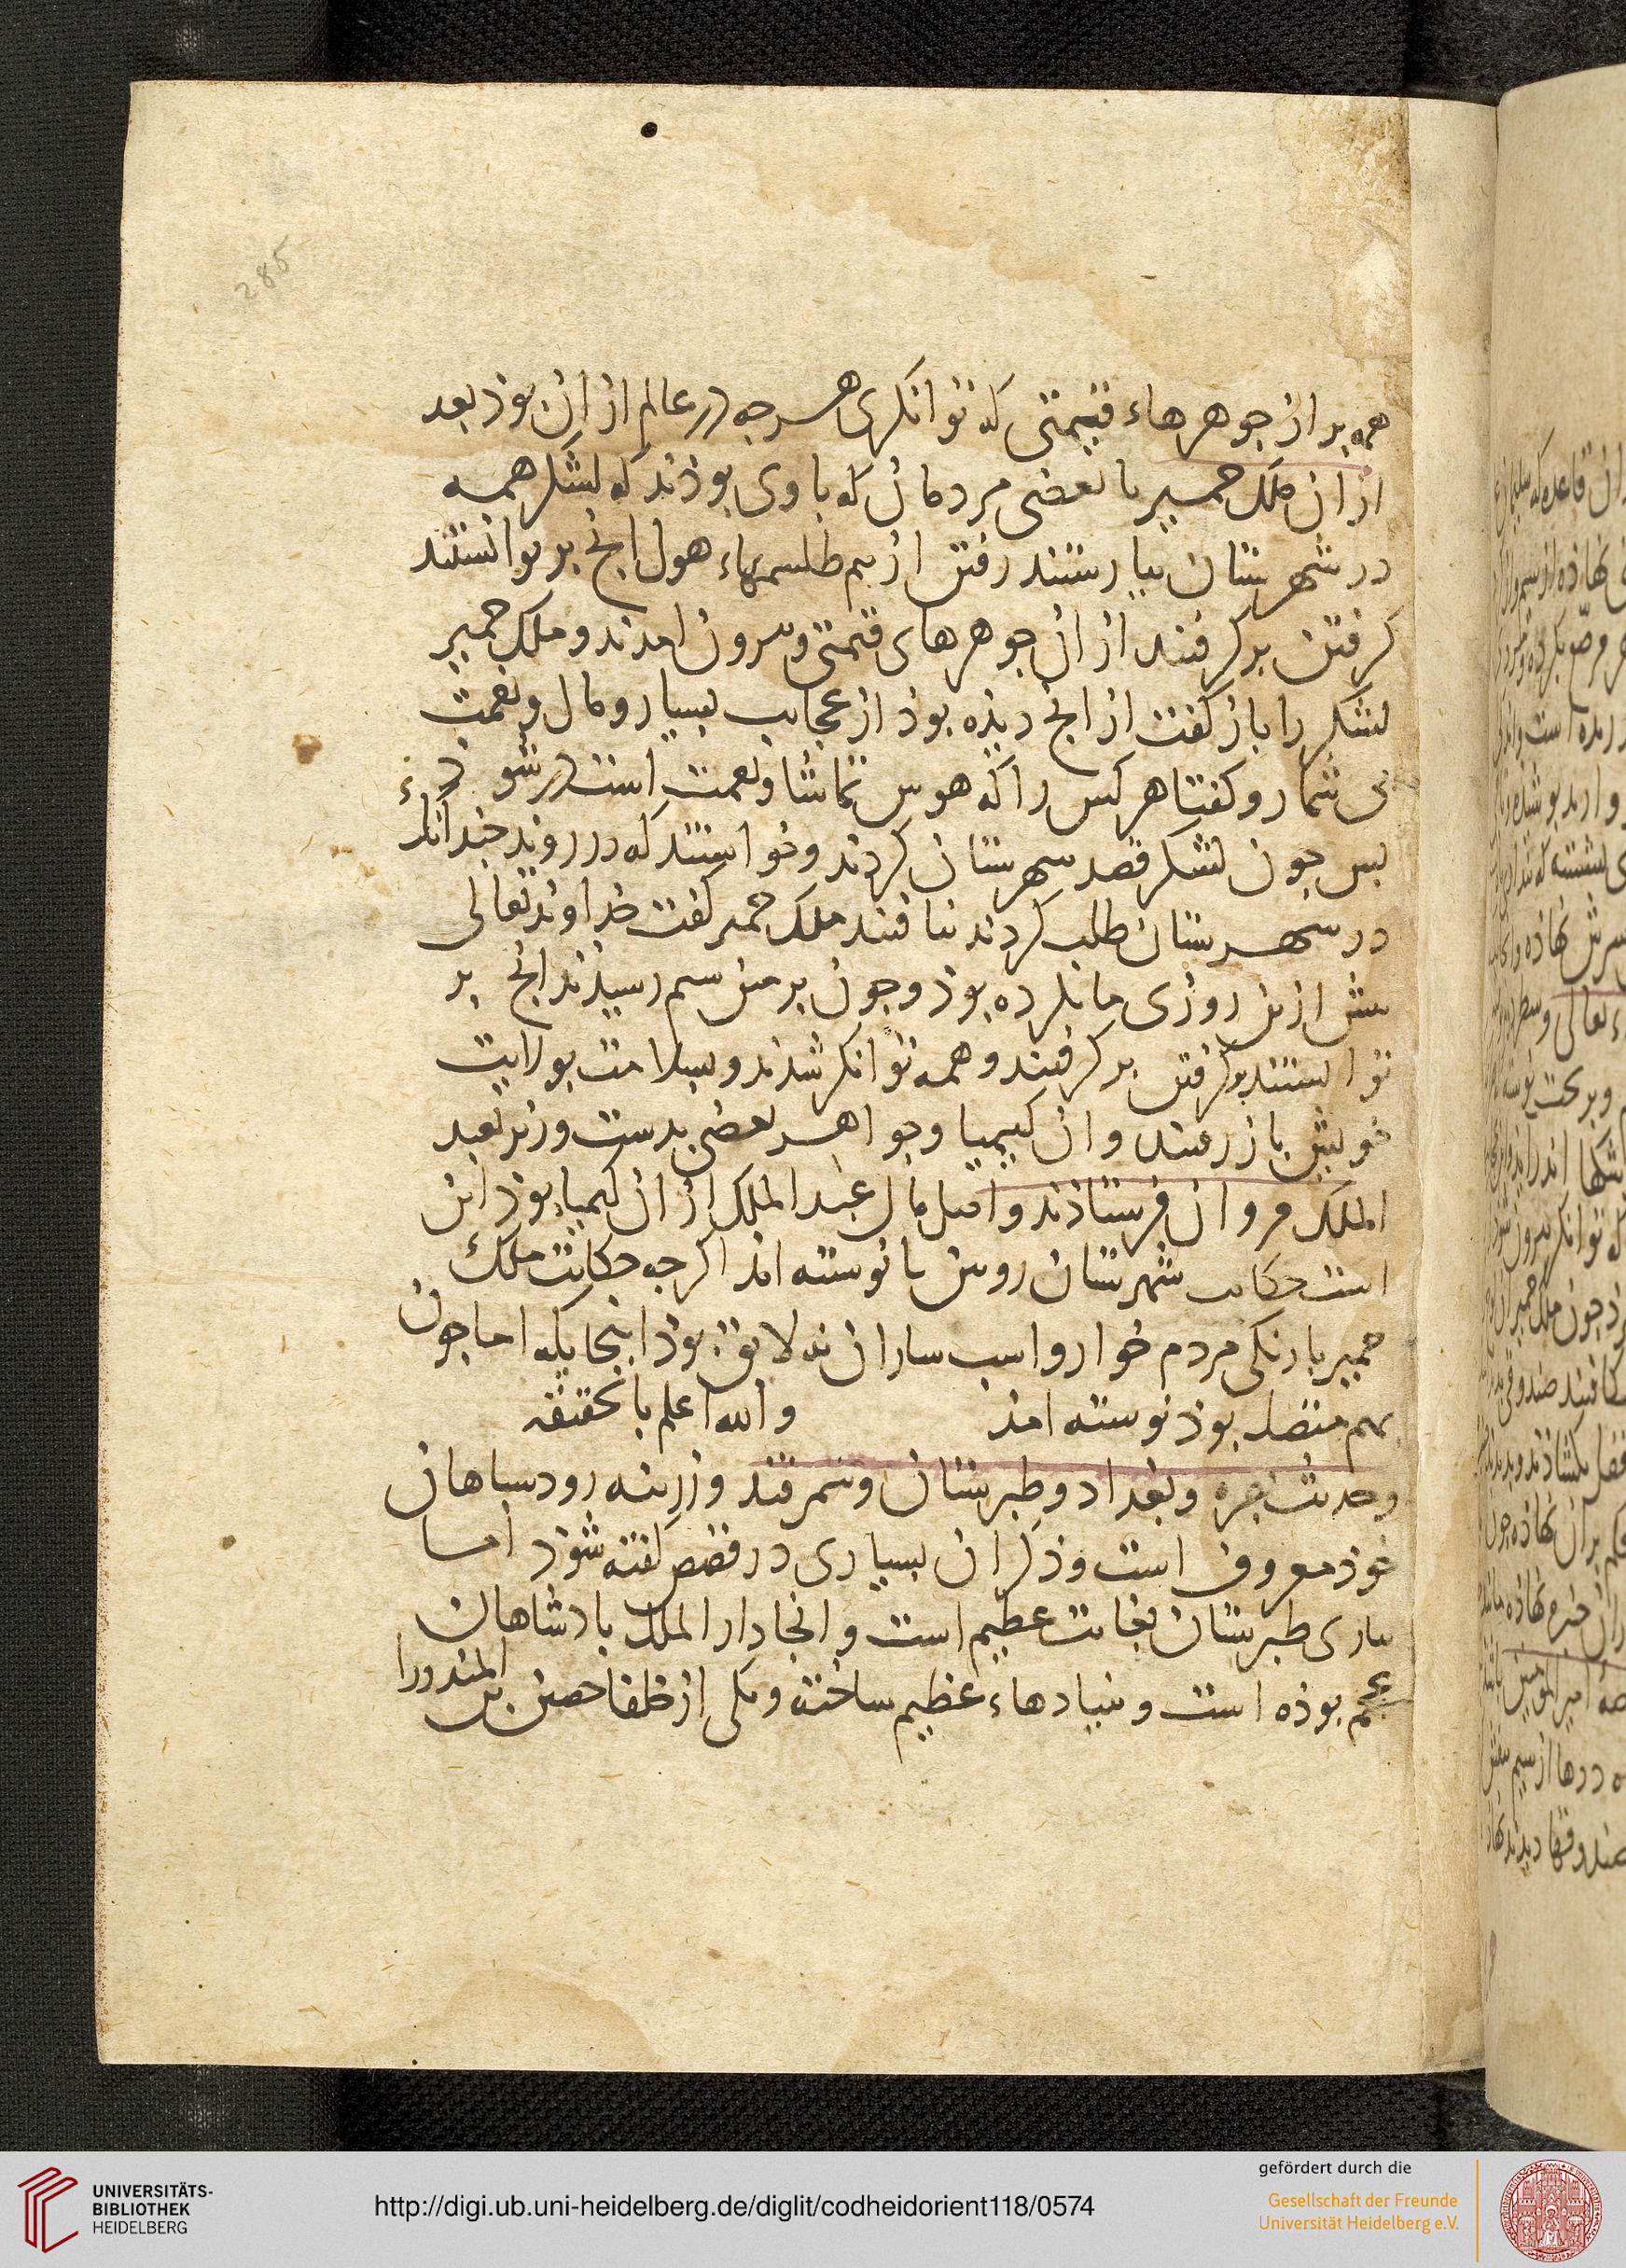 285
همه بر از جوهرهاء قیمتی که توانکری هرجه در عالم از ان بوذ بعد
از ان ملک حمیر با بعضی مردمان که با وی بوذند که لشکر همه
در شهرستان نیارستند رفتن از بیم طلسمهاء هول انج بر توانستند
کرفتن برکرفتند از ان جوهرهای قیمتی و بیرون امدند و ملک حمیر
لشکر را باز کفت از انج دیذه بوذ از عجایب بسیار و مال و نعمت
بی شمار و کفتا هر کس را که هوس تماشا و نعمت است در شو
بس جون لشکر قصد شهرستان کردند و خواستند که در روند جندانک
در شهرستان طلب کردند نیافتند ملک حمیر کفت خداوند تعالی
بیش ازین روزی ما نکرده بوذ و جون بر من سیم رسیذند انج بر
توانستند کرفتن برکرفتند و همه توانکر شدند و بسلامت بولایت
خویش باز رفتند و ان کیمیا و جواهر بعضی بدست وزیر بعبد
الملک مروان فرستاذند و اصل مال عبد الملک از ان کیمیا بوذ این
است حکایت شهرستان رویین تا نوشته اند اکرجه حکایت ملک
حمیر با زنکی مردم خوار و اسب ساران نه لایق بوذ اینجایکه اما جون
بهم متصل بوذ نوشته امذ والله اعلم بالحقیقه
وحدیث حیره و بغداد و طبرستان و سمرقند و زرینه رود سباهان
خوذ معروف است و ذکر ان بسیاری در قصص کفته شوذ اما
ساری طبرستان بغایت عظیم است و انجا دار الملک بادشاهان
عجم بوذه است و بنیادهاء عظیم ساخته و یکی از خلفا حصین بن المنذر را
UNIVERSITÄTS-
BIBLIOTHEK
HEIDELBERG
http://digi.ub.uni-heidelberg.de/diglit/codheidorient118/0574
gefördert durch die
Gesellschaft der Freunde
Universität Heidelberg e.V.